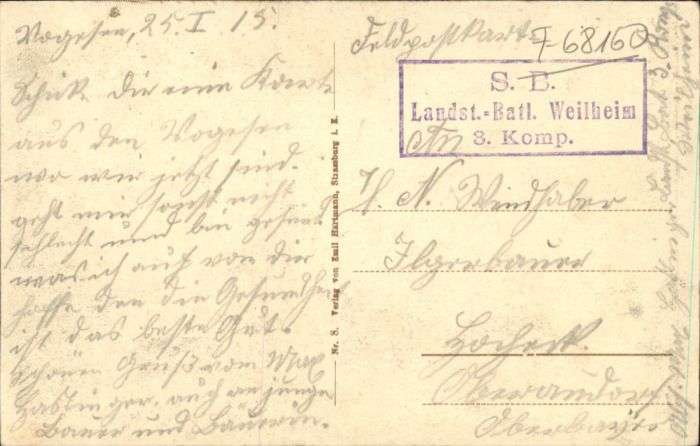 Vogesen, 25. I. 15.
Schick Dir eine Karte
aus den Vogesen
wo wir jetzt sind.
geht mir sonst nicht
schlecht und bin gesund
was ich auch von dir
hoffe den die Gesundheit
ist das beste Gut.
Schönen Gruß vom Max
Haslinger. auch an junge
Bauer und Bäuerin.
Nr. 8. Verlag von Emil Hartmann, Strassburg i. E.
Feldpostkarte
F 68160
S. B.
Landst.=Batl. Weilheim
3. Komp.
An
H. N. Windhaber
Ilgerbauer
Hocheck
Oberaudorf
Oberbayern